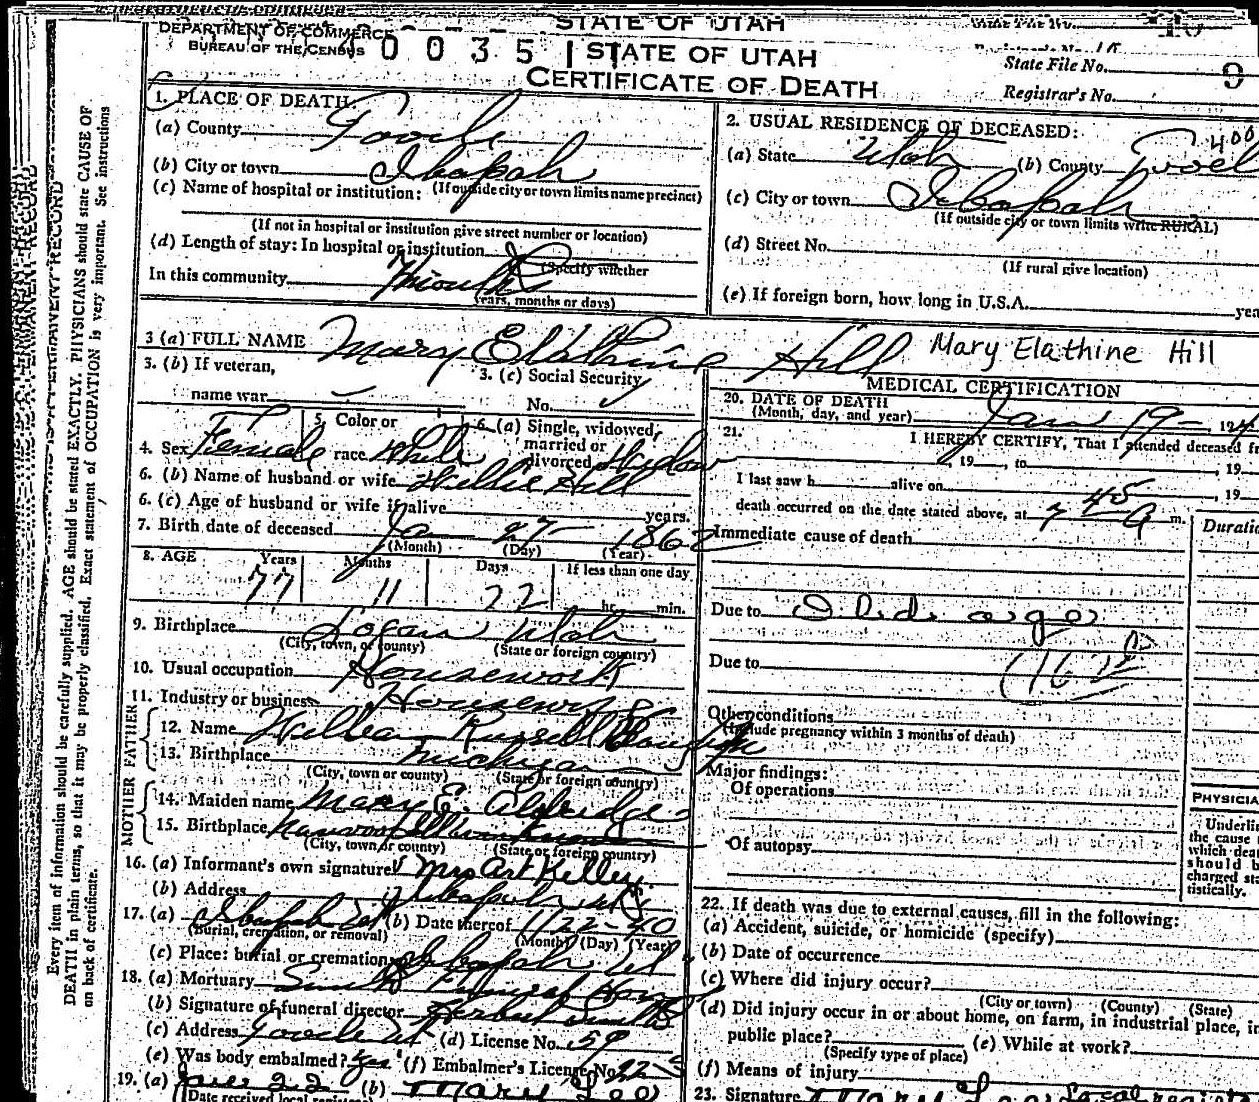 STATE OF UTAH
DEPARTMENT OF COMMERCE
BUREAU OF THE CENSUS
0 0 3 5
STATE OF UTAH
CERTIFICATE OF DEATH
State File No.
9
Registrar's No.
Every item of information should be carefully supplied. AGE should be stated EXACTLY. PHYSICIANS should state CAUSE OF
DEATH in plain terms, so that it may be properly classified. Exact statement of OCCUPATION is very important. See instructions
on back of certificate.
1. PLACE OF DEATH:
(a) County Tooele
(b) City or town Ibapah
(c) Name of hospital or institution: (If outside city or town limits name precinct)
(If not in hospital or institution give street number or location)
(d) Length of stay: In hospital or institution
(Specify whether
In this community Months
years, months or days)
2. USUAL RESIDENCE OF DECEASED:
400
(a) State Utah (b) County Tooel
(c) City or town Ibapah
(If outside city or town limits write RURAL)
(d) Street No.
(If rural give location)
(e) If foreign born, how long in U.S.A. yea
3 (a) FULL NAME Mary Elathine Hill Mary Elathine Hill
3. (b) If veteran,
name war
3. (c) Social Security
No.
4. Sex Female
5. Color or
race White
6. (a) Single, widowed,
married or
divorced Widow
6. (b) Name of husband or wife Willie Hill
6. (c) Age of husband or wife if alive years.
7. Birth date of deceased Jan 27 1862
(Month) (Day) (Year)
8. AGE Years Months Days If less than one day
77 11 22 hr. min.
9. Birthplace Logan Utah
(City, town, or county) (State or foreign country)
10. Usual occupation Housework
11. Industry or business Housewife
FATHER
12. Name William Russell
13. Birthplace Michigan
(City, town or county) (State or foreign country)
MOTHER
14. Maiden name Mary E. Aldredge
15. Birthplace
(City, town or county) (State or foreign country)
16. (a) Informant's own signature Mrs Art Kelley
(b) Address Ibapah Ut
17. (a) Ibapah Ut (b) Date thereof 1/22-40
(Burial, cremation, or removal) (Month) (Day) (Year)
(c) Place: burial or cremation Ibapah Ut
18. (a) Mortuary Smith Funeral Home
(b) Signature of funeral director Herbert Smith
(c) Address Tooele Ut (d) License No. 59
(e) Was body embalmed? Yes (f) Embalmer's License No.
19. (a) 22 (b) Mary Lee
(Date received local
MEDICAL CERTIFICATION
20. DATE OF DEATH
(Month, day, and year) Jan 19 - 194
21. I HEREBY CERTIFY, That I attended deceased fr
, 19 , to , 19
I last saw h alive on , 19
death occurred on the date stated above, at 7 45 A m.
Immediate cause of death
Duratio
Due to Old age
Due to
Other conditions
(Include pregnancy within 3 months of death)
Major findings:
Of operations
Of autopsy
PHYSICIA
Underlin
the cause
which dea
should b
charged sta
tistically.
22. If death was due to external causes, fill in the following:
(a) Accident, suicide, or homicide (specify)
(b) Date of occurrence
(c) Where did injury occur?
(City or town) (County) (State)
(d) Did injury occur in or about home, on farm, in industrial place, in
public place? (e) While at work?
(Specify type of place)
(f) Means of injury
23. Signature Mary Lee Local